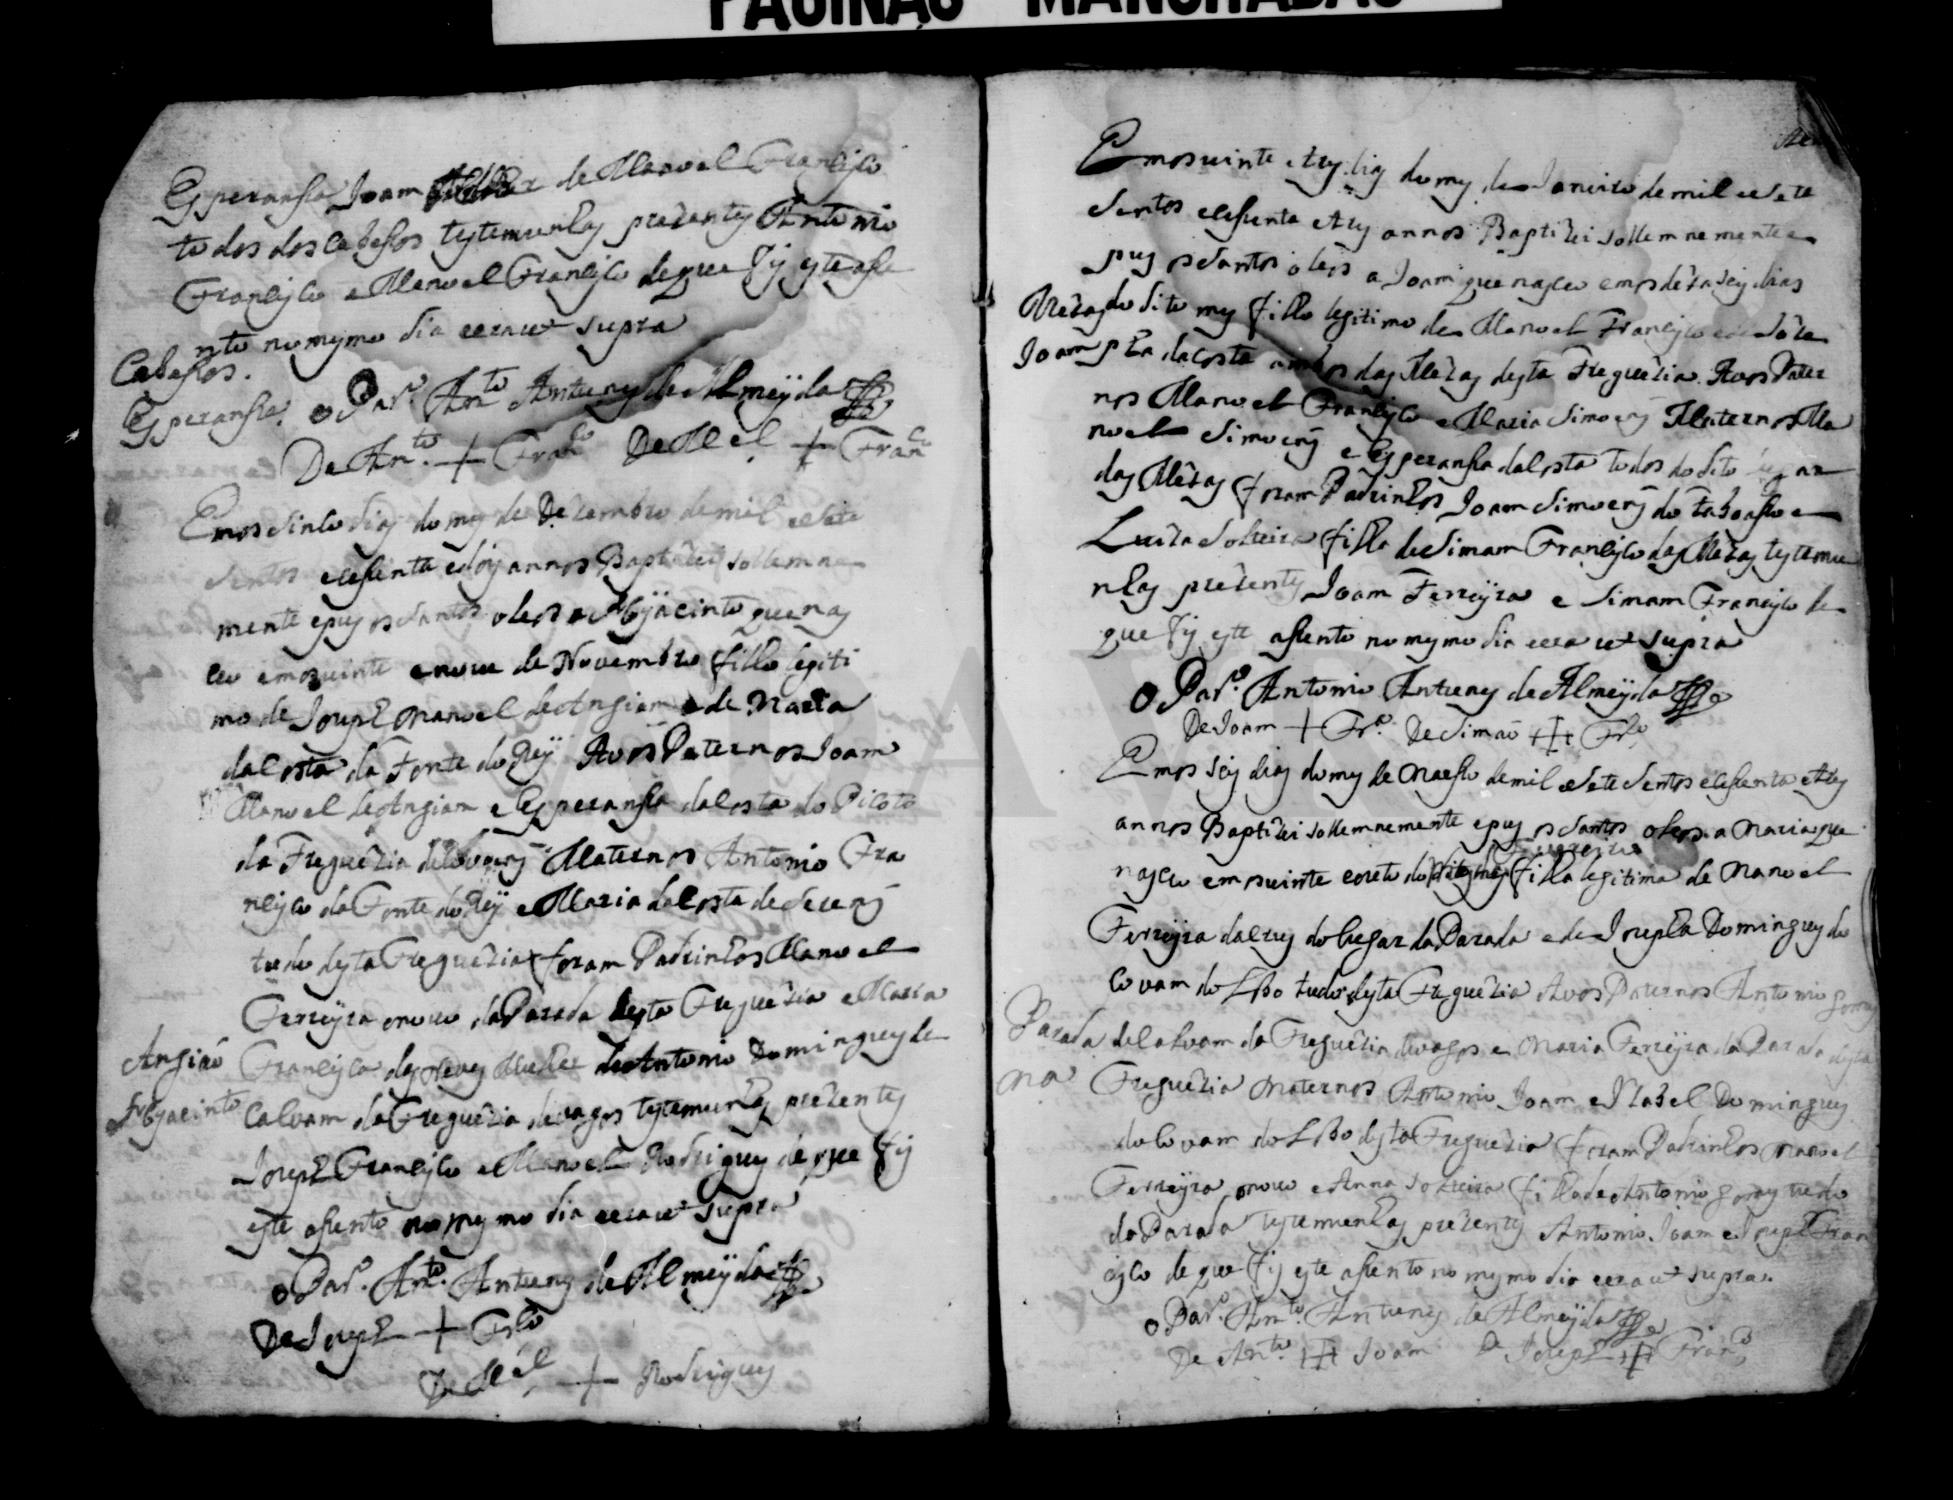 PAGINAS MANCHADAS
Esperansa Joam de Manoel Francisco
todos dos Cabesos testemunhas prezentes Antonio
Francisco e Manoel Francisco de que fis este ase
nto no mesmo dia eera ut supra
Cabesos.
Esperansa.
o Par.º An.to Antunes de Almeÿda
De An.to + Fran.co De M.el + Fran.co
Emos sinco dias do mes de Dezembro de mil e sete
sentos e sesenta e dois annos Baptizei sollemne
mente e pus os santos oleos a Hyacinto que nas
ceo emos vinte e nove de Novembro filho legiti
mo de Joseph Manoel de Angiam e de Maria
da Costa da Fonte do Reÿ Avós Paternos Joam
Manoel de Angiam e Esperansa da Costa do Picoto
da Freguezia de Maternos Antonio Fra
ncisco da Fonte do Reÿ e Maria da Costa de
tudo desta Freguezia foram Padrinhos Manoel
Ferreÿra novo da Parada desta Freguezia e Maria
Angião
Hyacinto
Francisca das Neves mulher de Antonio Domingues de
Calvam da Freguezia de vagos testemunhas prezentes
Joseph Francisco e Manoel Rodrigues de que fis
este asento no mesmo dia eera ut supra
o Par.º An.to Antunes de Almeÿda
De Joseph + Fr.co
De M.el + Rodrigues
Emos vinte e tres dias do mes de Janeiro de mil e sete
sentos e sesenta e tres annos Baptizei sollemnemente e
pus os santos oleos a Joam que nasceo emos dezaseis dias
Mezas
Joam
do dito mes filho legitimo de Manoel Francisco e de Joze
pha da Costa ambos das Mezas desta Freguezia. Avos Pater
nos Manoel Francisco e Maria Simoens Maternos Ma
noel Simoens e Esperansa da Costa todos do dito lugar
das Mezas foram Padrinhos Joam Simoens do Taboaso e
Luiza solteira filha de Simam Francisco das Mezas testemu
nhas prezentes Joam Ferreÿra e Simam Francisco de
que fis este asento no mesmo dia eera ut supra
o Par.º Antonio Antunes de Almeÿda
De Joam + Fr.ª De Simão + Fr.co
Emos seis dias do mes de Marso de mil e sete sentos e sesenta e tres
annos Baptizei sollemnemente e pus os santos oleos a Maria que
Fevereiro
nasceo emos vinte e oito do dito mes filha legitima de Manoel
Ferreÿra da Crus do lugar da Parada e de Josepha Domingues do
Covam do Lobo tudo desta Freguezia Avós Paternos Antonio Gomes
Parada
Mª
de Calvam da Freguezia de vagos e Maria Ferreÿra da Parada desta
Freguezia Maternos Antonio Joam e Izabel Domingues
do Covam do Lobo desta Freguezia foram Padrinhos Manoel
Ferreÿra novo e Anna solteira filha de Antonio Gomes tudo
da Parada testemunhas prezentes Antonio Joam e Joseph Fran
cisco de que fis este asento no mesmo dia eera ut supra.
o Par.º An.to Antunes de Almeÿda
De An.to + Joam De Joseph + Fran.co